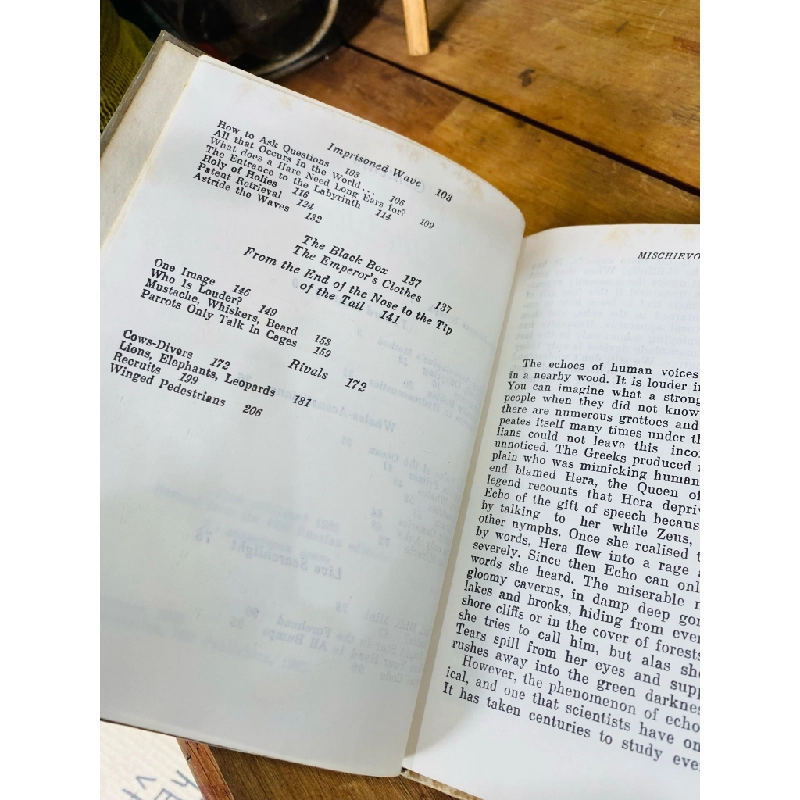 Imprisoned Wave 103
How to Ask Questions 103
All that Occurs in the World... 106
What does a Hare Need Long Ears for? 109
The Entrance to the Labyrinth 114
Holy of Holies 116
Patent Retrieval 124
Astride the Waves 132
The Black Box 137
The Emperor's Clothes 137
From the End of the Nose to the Tip
of the Tail 141
One Image 146
Who Is Louder? 149
Mustache, Whiskers, Beard 153
Parrots Only Talk in Cages 159
Rivals 172
Cows-Divers 172
Lions, Elephants, Leopards 181
Recruits 199
Winged Pedestrians 206
Live Searchlight 75
MISCHIEVO
The echoes of human voices
in a nearby wood. It is louder in
You can imagine what a strong
people when they did not know
there are numerous grottoes and
peates itself many times under th
lians could not leave this incor
unnoticed. The Greeks produced
plain who was mimicking human
end blamed Hera, the Queen of
legend recounts that Hera depriv
Echo of the gift of speech becaus
by talking to her while Zeus,
other nymphs. Once she realised t
by words, Hera flew into a rage a
severely. Since then Echo can onl
words she heard. The miserable n
gloomy caverns, in damp deep gor
lakes and brooks, hiding from ever
shore cliffs or in the cover of forests
she tries to call him, but alas she
Tears spill from her eyes and supp
rushes away into the green darkness
However, the phenomenon of echo
ical, and one that scientists have on
It has taken centuries to study eve